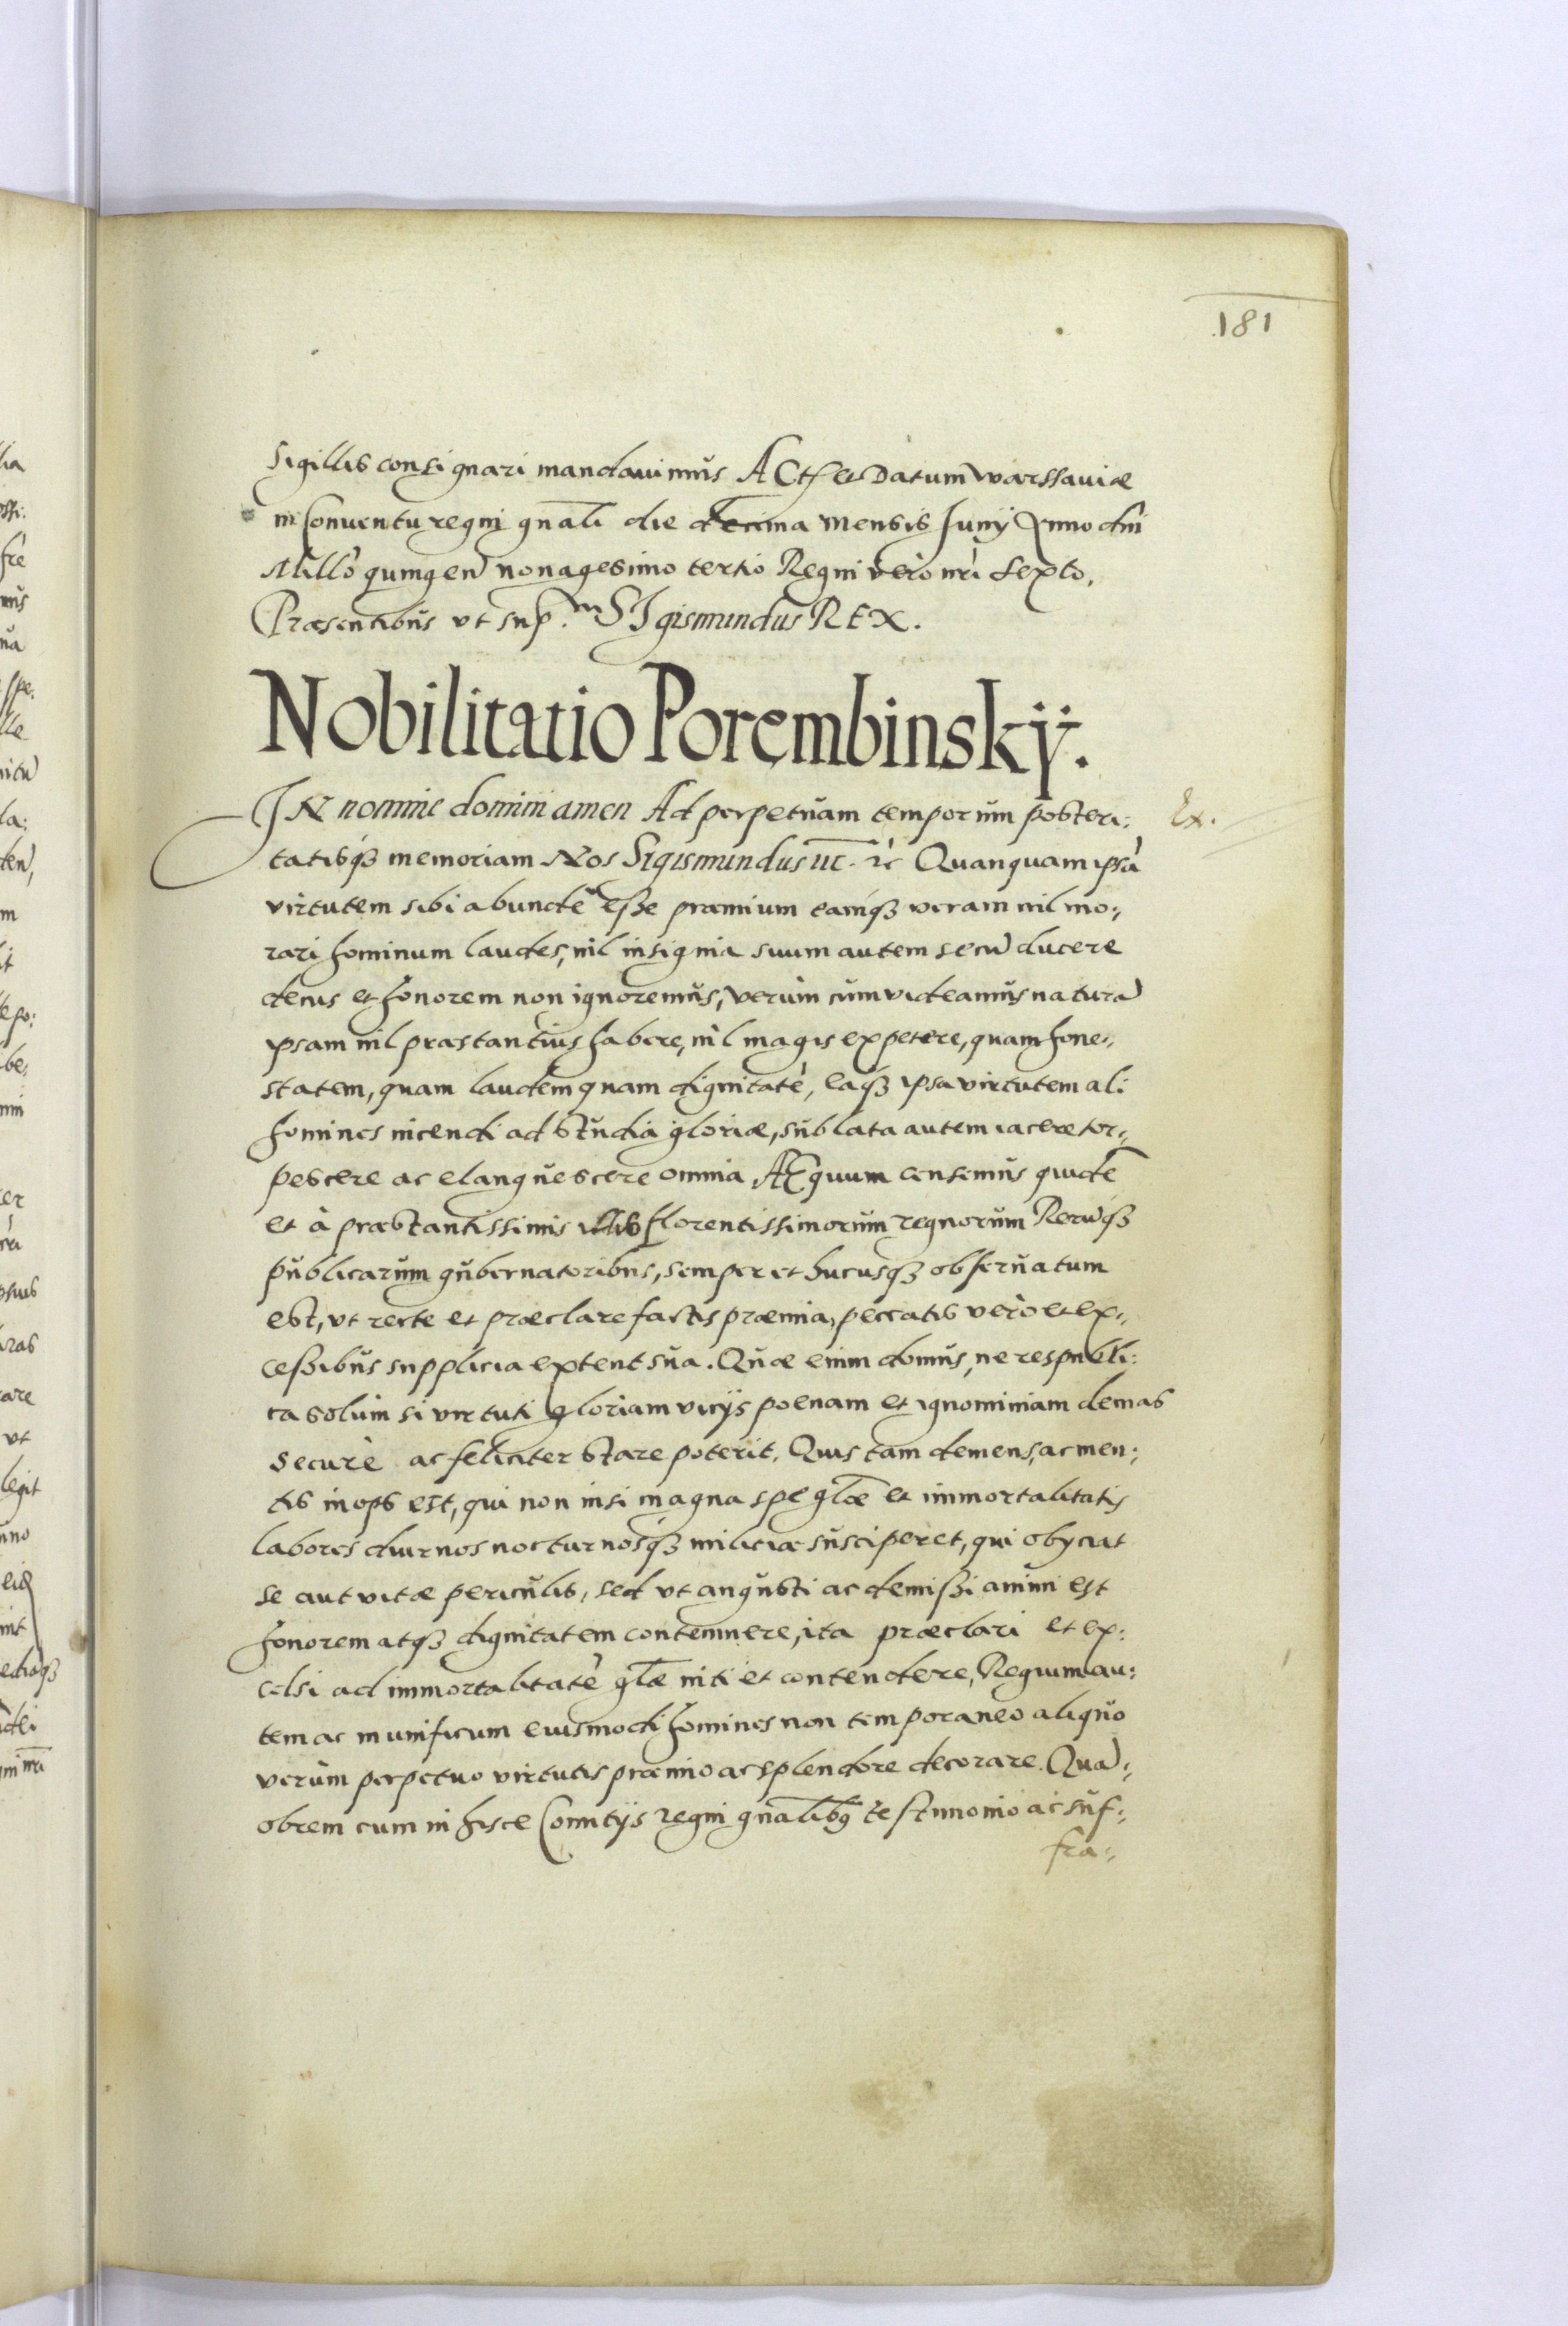 181
sigillis consignari mandauimus ACt et Datum warssauiæ
in Conuentu regni gnali die decima mensis Junij Anno dni
Millo quingen nonagesimo tertio Regni vero nri sexto,
Præsentibus vt sup. SIgismundus REX.
Nobilitatio Porembinskÿ.
IN nomine domini amen Ad perpetuam temporum posteri:
Ex.
tatisq3 memoriam Nos Sigismundus ut. rc Quanquam ipsã
virtutem sibi abunde eße præmium eamq3 veram nil mo:,
rari hominum laudes, nil insignia suum autem secũ ducere
decus et honorem non ignoremus, verùm cùm videamus naturã
ipsam nil præstantius habere, nil magis expetere, quam hone:,
statem, quam laudem quam dignitatẽ, eaq3 ipsa virtutem ali
homines incendi ad studia gloriæ, sublata autem iacere tor:,
pescere ac elanguescere omnia Æquum censemus quidẽ
et à præstantissimis illis florentissimorum regnorum Rerũq3
publicarum gubernatoribus, semper et hucusq3 obseruatum
est, vt recte et præclare factis præmia, peccatis verò et ex:,
ceßibus supplicia extent sua. Quæ enim domus, ne respubli:
ca solùm si virtuti gloriam vicijs poenam et ignominiam demas
securè ac feliciter stare poterit. Quis tam demens, ac men:
tis inops est, qui non insi magna spe gloæ et immortalitatis
labores diurnos nocturnosq3 miliciæ susciperet, qui obyciat
se aut vitæ periculis, sed vt angusti ac demißi animi est
honorem atq3 dignitatem contemnere, ita præclari et ex:
celsi ad immortalitatẽ glæ niti et contendere, Regium au:
tem ac munificum eiusmodi homines non temporaneo aliquo
verùm perpetuo virtutis præmio ac splendore decorare. Quã:,
obrem cum in hisce Comitijs regni gnalibus testimonio ac suf:,
fra:,